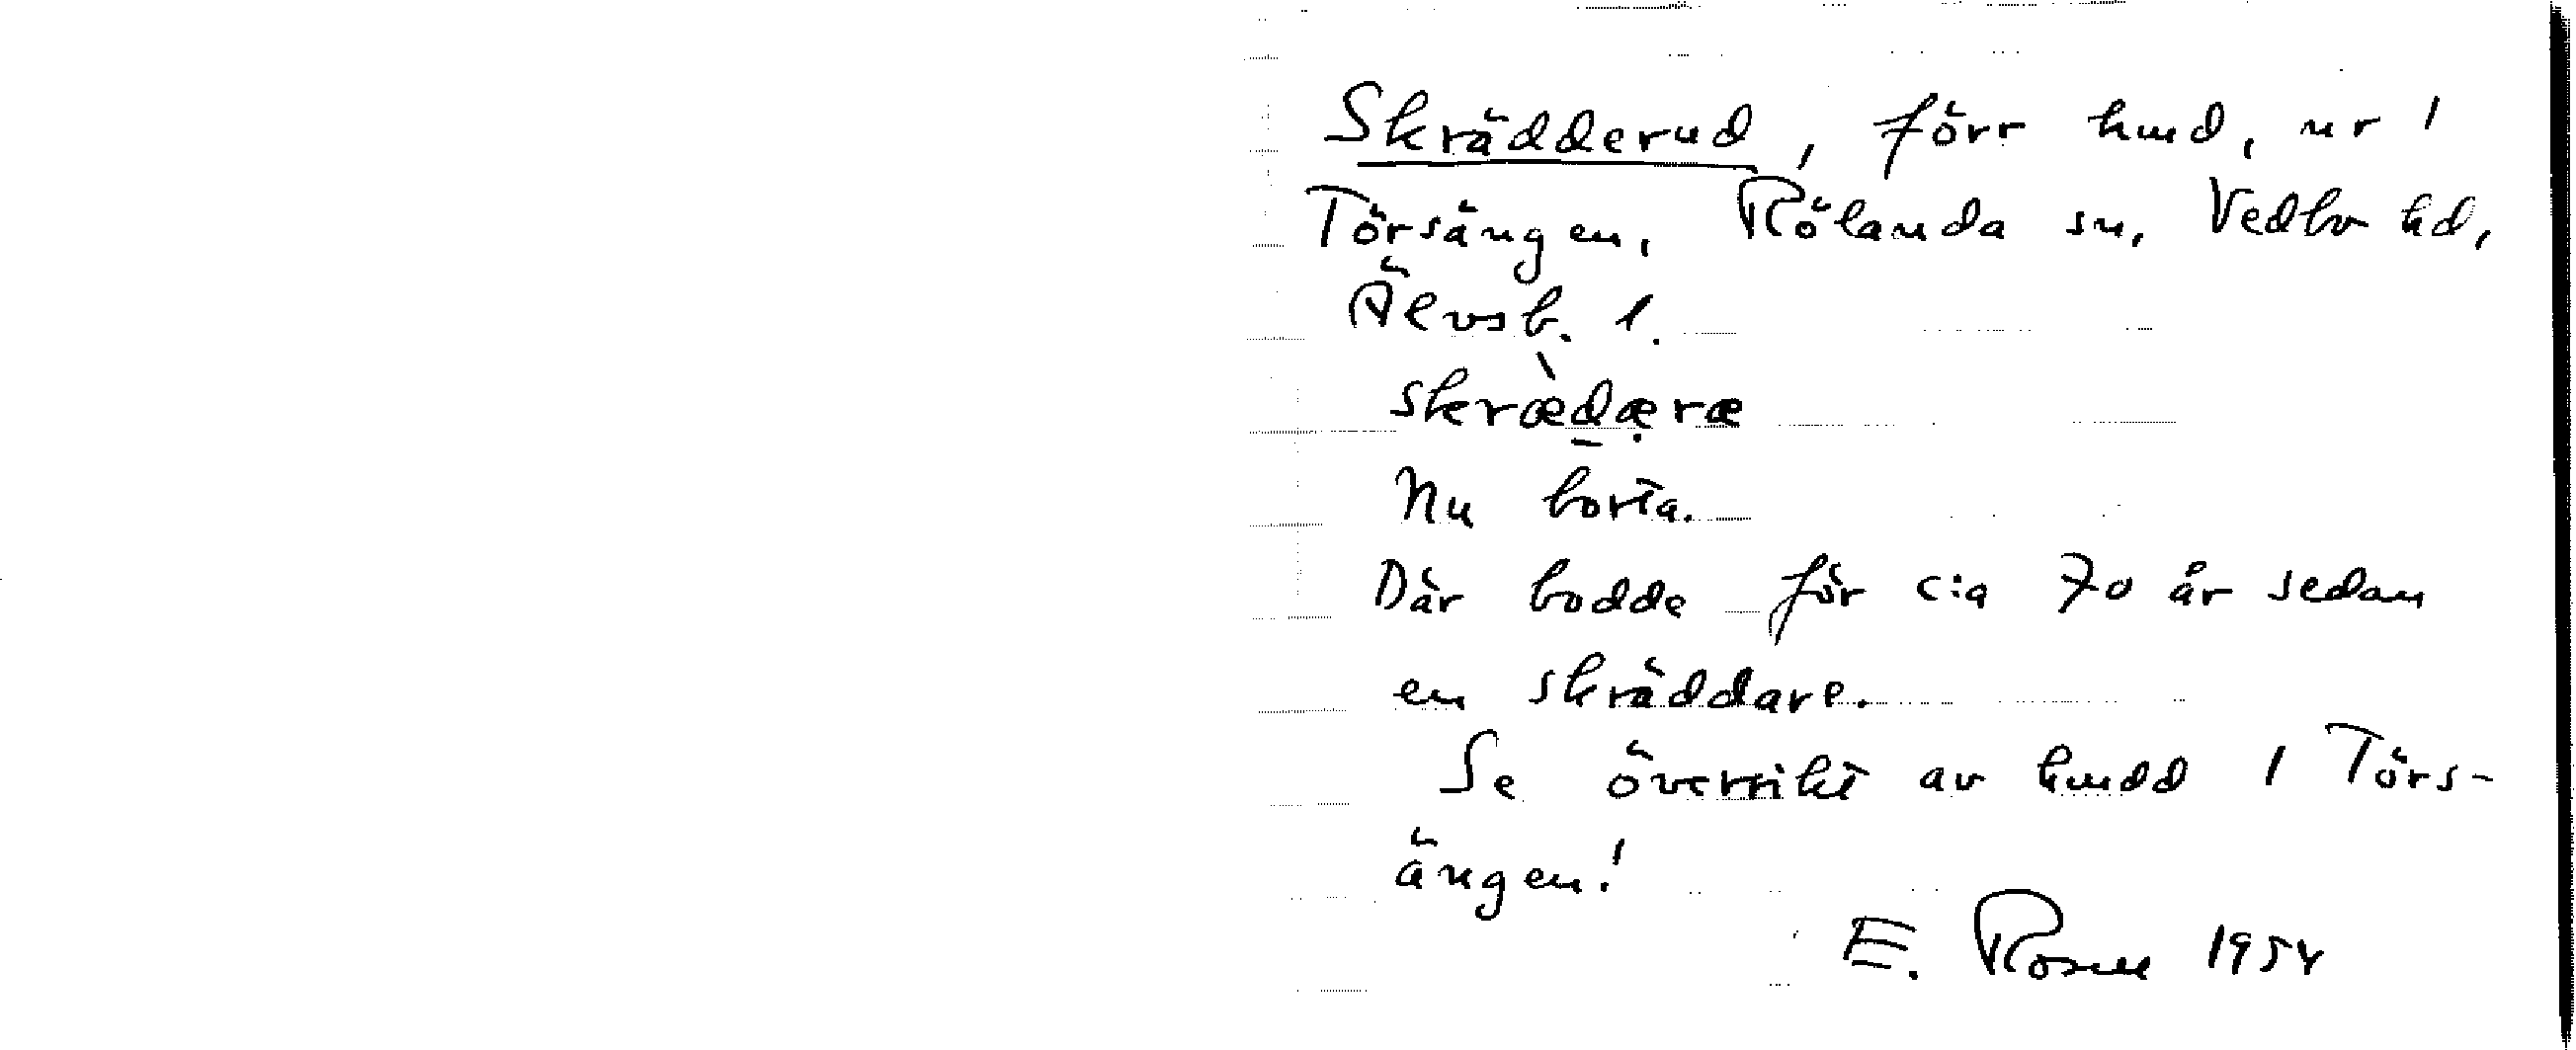 Skrädderud, förr hmd, nr 1
Törsängen, Rölanda sn, Vedbo hd,
Älvsb. l.
skræ̀dæ̣ræ
Nu borta.
Där bodde för c:a 70 år sedan
en skräddare.
Se översikt av hmdd i Törs-
ängen!
E. Rosell 1954